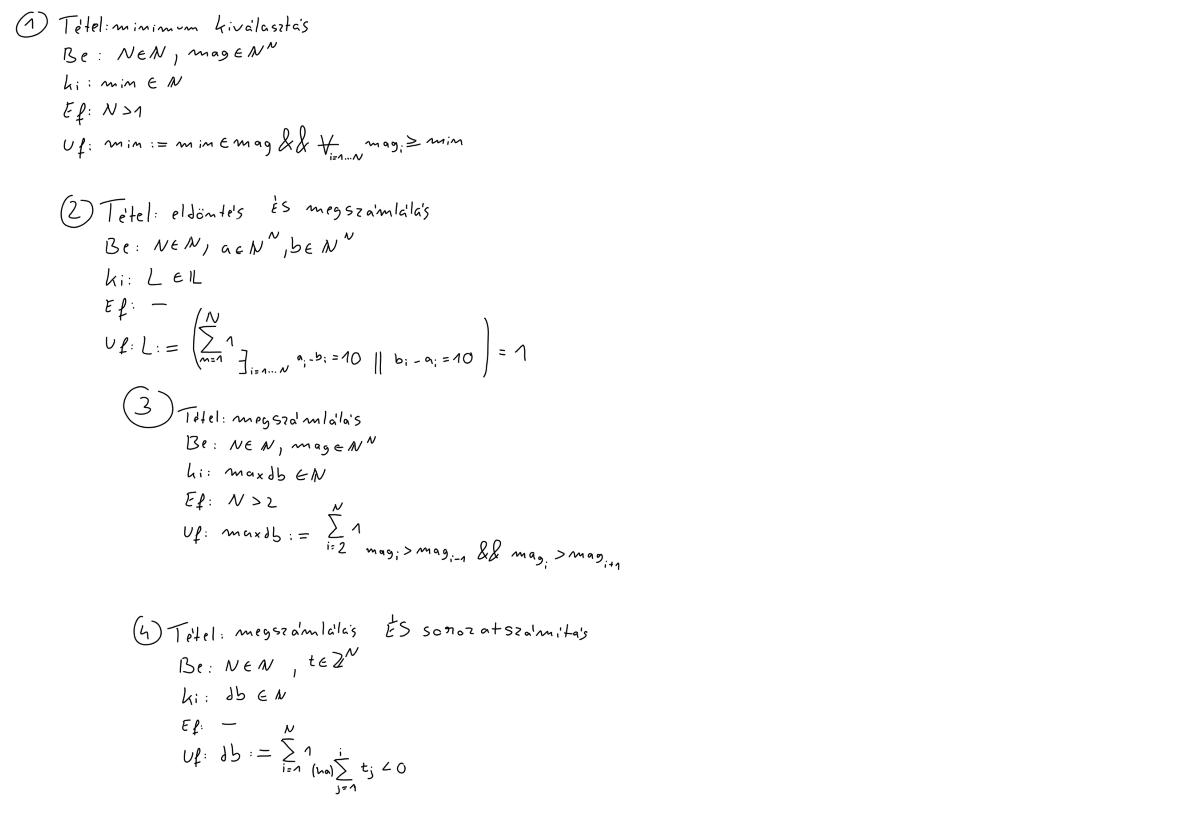 ① Tétel: minimum kiválasztás
Be: N∈ℕ, mag∈ℕᴺ
ki: min ∈ ℕ
Ef: N>1
Uf: min := min∈mag && ∀ i=1...N magᵢ ≥ min
② Tétel: eldöntés ÉS megszámlálás
Be: N∈ℕ, a∈ℕᴺ, b∈ℕᴺ
ki: L ∈ 𝕃
Ef: —
Uf: L := (∑ n=1 N 1 ∃ i=1...N aᵢ-bᵢ=10 || bᵢ-aᵢ=10) = 1
③ Tétel: megszámlálás
Be: N∈ℕ, mag∈ℕᴺ
ki: maxdb ∈ℕ
Ef: N>2
Uf: maxdb := ∑ i=2 N 1 magᵢ > magᵢ₋₁ && magᵢ > magᵢ₊₁
④ Tétel: megszámlálás ÉS sorozatszámítás
Be: N∈ℕ, t∈ℤᴺ
ki: db ∈ ℕ
Ef: —
Uf: db := ∑ i=1 N 1 (ha) ∑ j=1 i tⱼ < 0